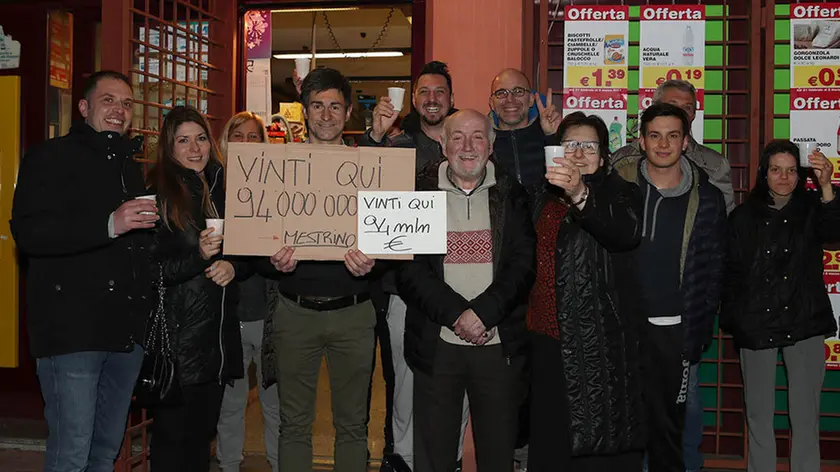 Offerta
Offerta
Offerta
BISCOTTI
PASTEFROLLE/
CIAMBELLE/
ZUPPOLE O
GRUSCHELLE
BALOCCO
€1.39
ACQUA
NATURALE
VERA
€0.19
GORGONZOLA
DOLCE LEONARDI
Offerta
Offerta
Offerta
VINTI QUI
94 000 000
→ MESTRINO
VINTI QUI
94 mln
€